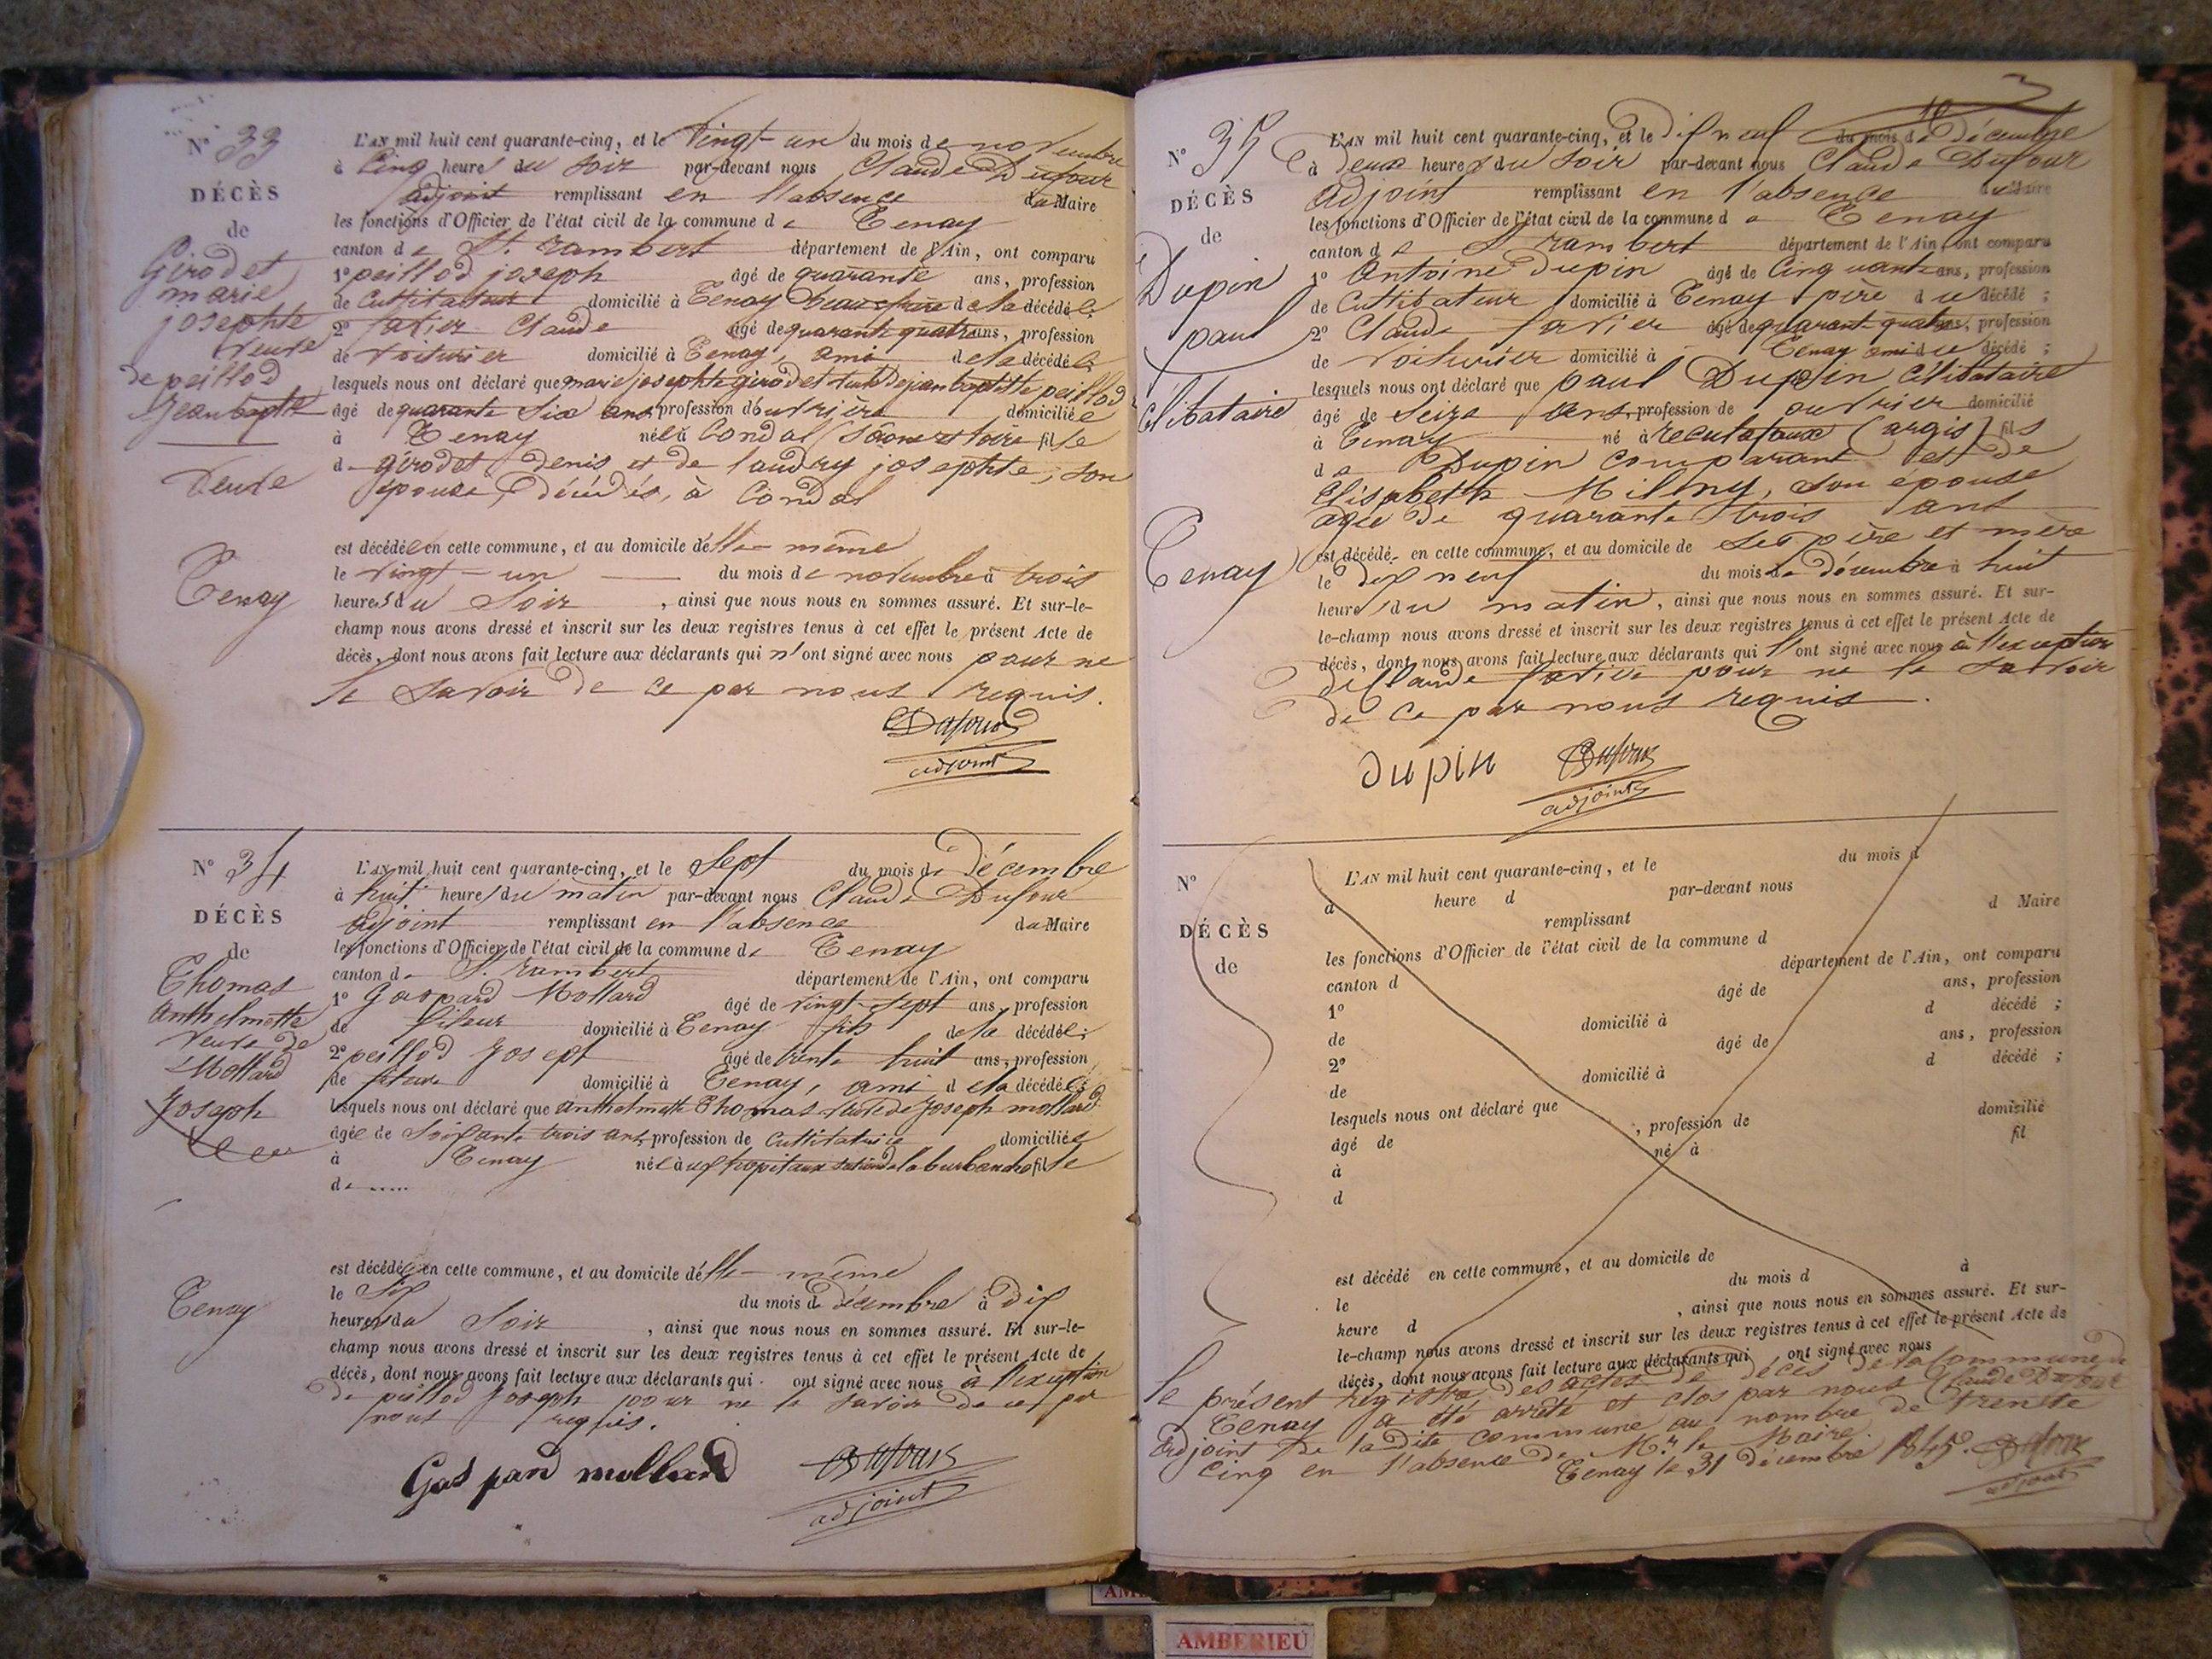 N° 33
DÉCÈS
de
Girodet
marie
josephte
veuve
de peillod
Jean baptte
veuve
Tenay
L'AN mil huit cent quarante-cinq, et le vingt-un du mois de novembre
à Cinq heures du soir par-devant nous Claude Dufour
adjoint remplissant en l'absence du Maire
les fonctions d'Officier de l'état civil de la commune de Tenay
canton de St. rambert département de l'Ain, ont comparu
1° peillod joseph âgé de quarante ans, profession
de Cultivateur domicilié à Tenay de la décédée;
2° Claude âgé de quarante quatre ans, profession
de voiturier domicilié à Tenay, ami de la décédée
lesquels nous ont déclaré que marie josephte girodet de jean baptiste peillod
âgé de quarante six ans, profession d'ouvrière domiciliée
à Tenay née à Condal (Saone et loire fille
de girodet denis et de laudry josephte, son
épouse, décédés, à Condal
est décédée en cette commune, et au domicile d'elle-même
le vingt-un du mois de novembre à trois
heures du Soir, ainsi que nous nous en sommes assuré. Et sur-le-
champ nous avons dressé et inscrit sur les deux registres tenus à cet effet le présent Acte de
décès, dont nous avons fait lecture aux déclarants qui n'ont signé avec nous pour ne
le savoir de ce par nous requis.
CDufour
adjoint
N° 34
DÉCÈS
de
Thomas
Anthelmette
veuve de
Mollard
Joseph
Tenay
L'AN mil huit cent quarante-cinq, et le Sept du mois de décembre
à huit heures du matin par-devant nous Claude Dufour
adjoint remplissant en l'absence du Maire
les fonctions d'Officier de l'état civil de la commune de Tenay
canton de St. rambert département de l'Ain, ont comparu
1° Gaspard Mollard âgé de vingt-sept ans, profession
de fileur domicilié à Tenay fils de la décédée;
2° peillod Joseph âgé de trente huit ans, profession
de fileur domicilié à Tenay, ami de la décédée;
lesquels nous ont déclaré que anthelmette Thomas veuve de Joseph mollard
âgée de Soixante trois ans, profession de Cultivatrice domiciliée
à Tenay née à hopitaux fille
de .....
est décédée en cette commune, et au domicile d'elle-même
le Six du mois de décembre à dix
heures du Soir, ainsi que nous nous en sommes assuré. Et sur-le-
champ nous avons dressé et inscrit sur les deux registres tenus à cet effet le présent Acte de
décès, dont nous avons fait lecture aux déclarants qui ont signé avec nous à l'exception
de peillod Joseph pour ne le savoir de ce par
nous requis.
Gaspard mollard CDufour
adjoint
N° 35
DÉCÈS
de
Dupin
paul
Célibataire
Tenay
L'AN mil huit cent quarante-cinq, et le dix neuf du mois de décembre
à deux heures du soir par-devant nous Claude Dufour
adjoint remplissant en l'absence du Maire
les fonctions d'Officier de l'état civil de la commune de Tenay
canton de St rambert département de l'Ain, ont comparu
1° Antoine Dupin âgé de Cinquante ans, profession
de Cultivateur domicilié à Tenay père du décédé;
2° Claude âgé de quarante-quatre ans, profession
de voiturier domicilié à Tenay ami du décédé;
lesquels nous ont déclaré que paul Dupin Célibataire
âgé de seize ans, profession de ouvrier domicilié
à Tenay né à reculafaux (argis) fils
de Dupin comparant et de
Elisabeth Milliny, son epouse
agée de quarante trois ans
est décédé en cette commune, et au domicile de ses père et mère
le dix neuf du mois de décembre à huit
heures du matin, ainsi que nous nous en sommes assuré. Et sur-
le-champ nous avons dressé et inscrit sur les deux registres tenus à cet effet le présent Acte de
décès, dont nous avons fait lecture aux déclarants qui l'ont signé avec nous à l'exception
de Claude pour ne le savoir
de ce par nous requis.
dupin CDufour
adjoint
N°
DÉCÈS
de
L'AN mil huit cent quarante-cinq, et le du mois d
à heure d par-devant nous
remplissant d Maire
les fonctions d'Officier de l'état civil de la commune d
canton d département de l'Ain, ont comparu
1° âgé de ans, profession
de domicilié à d décédé;
2° âgé de ans, profession
de domicilié à d décédé;
lesquels nous ont déclaré que
âgé de , profession de domicilié
à né à fil
d
est décédé en cette commune, et au domicile de
le du mois d à
heure d , ainsi que nous nous en sommes assuré. Et sur-
le-champ nous avons dressé et inscrit sur les deux registres tenus à cet effet le présent Acte de
décès, dont nous avons fait lecture aux déclarants qui ont signé avec nous
le présent registre des actes de décès de la commune de
Tenay a été arrêté et clos par nous Claude Dufour
adjoint de la dite commune au nombre de trente
cinq en l'absence de Mr. le Maire.
Tenay le 31 décembre 1845. CDufour
adjoint
AMBERIEU